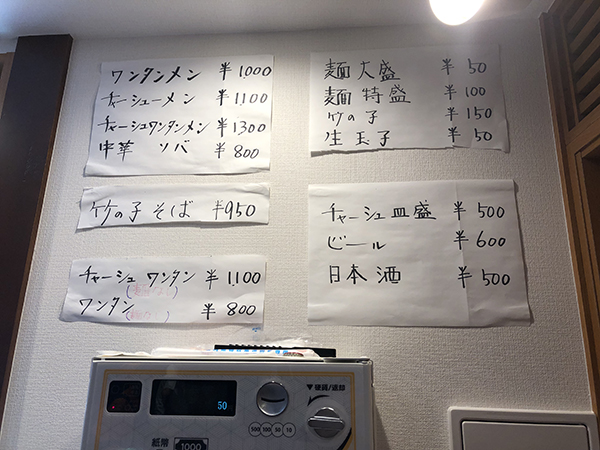 ワンタンメン ¥1000
チャーシューメン ¥1,100
チャーシュワンタンメン ¥1300
中華 ソバ ¥800
竹の子そば ¥950
チャーシュワンタン ¥1,100
ワンタン ¥800
麺大盛 ¥50
麺特盛 ¥100
竹の子 ¥150
生玉子 ¥50
チャーシュ皿盛 ¥500
ビール ¥600
日本酒 ¥500
50
▼硬貨/返却
500 100 50 10
紙幣 1000